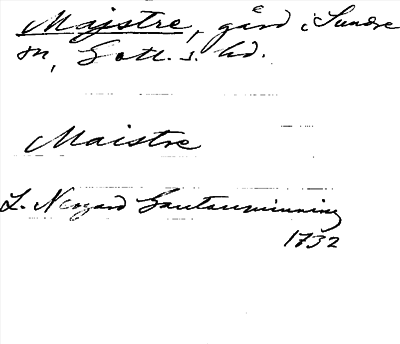 Majstre, gård i Sundre
sn, Gotl. s. hd.
Maistre
L. Neogard Gautauminning
1732